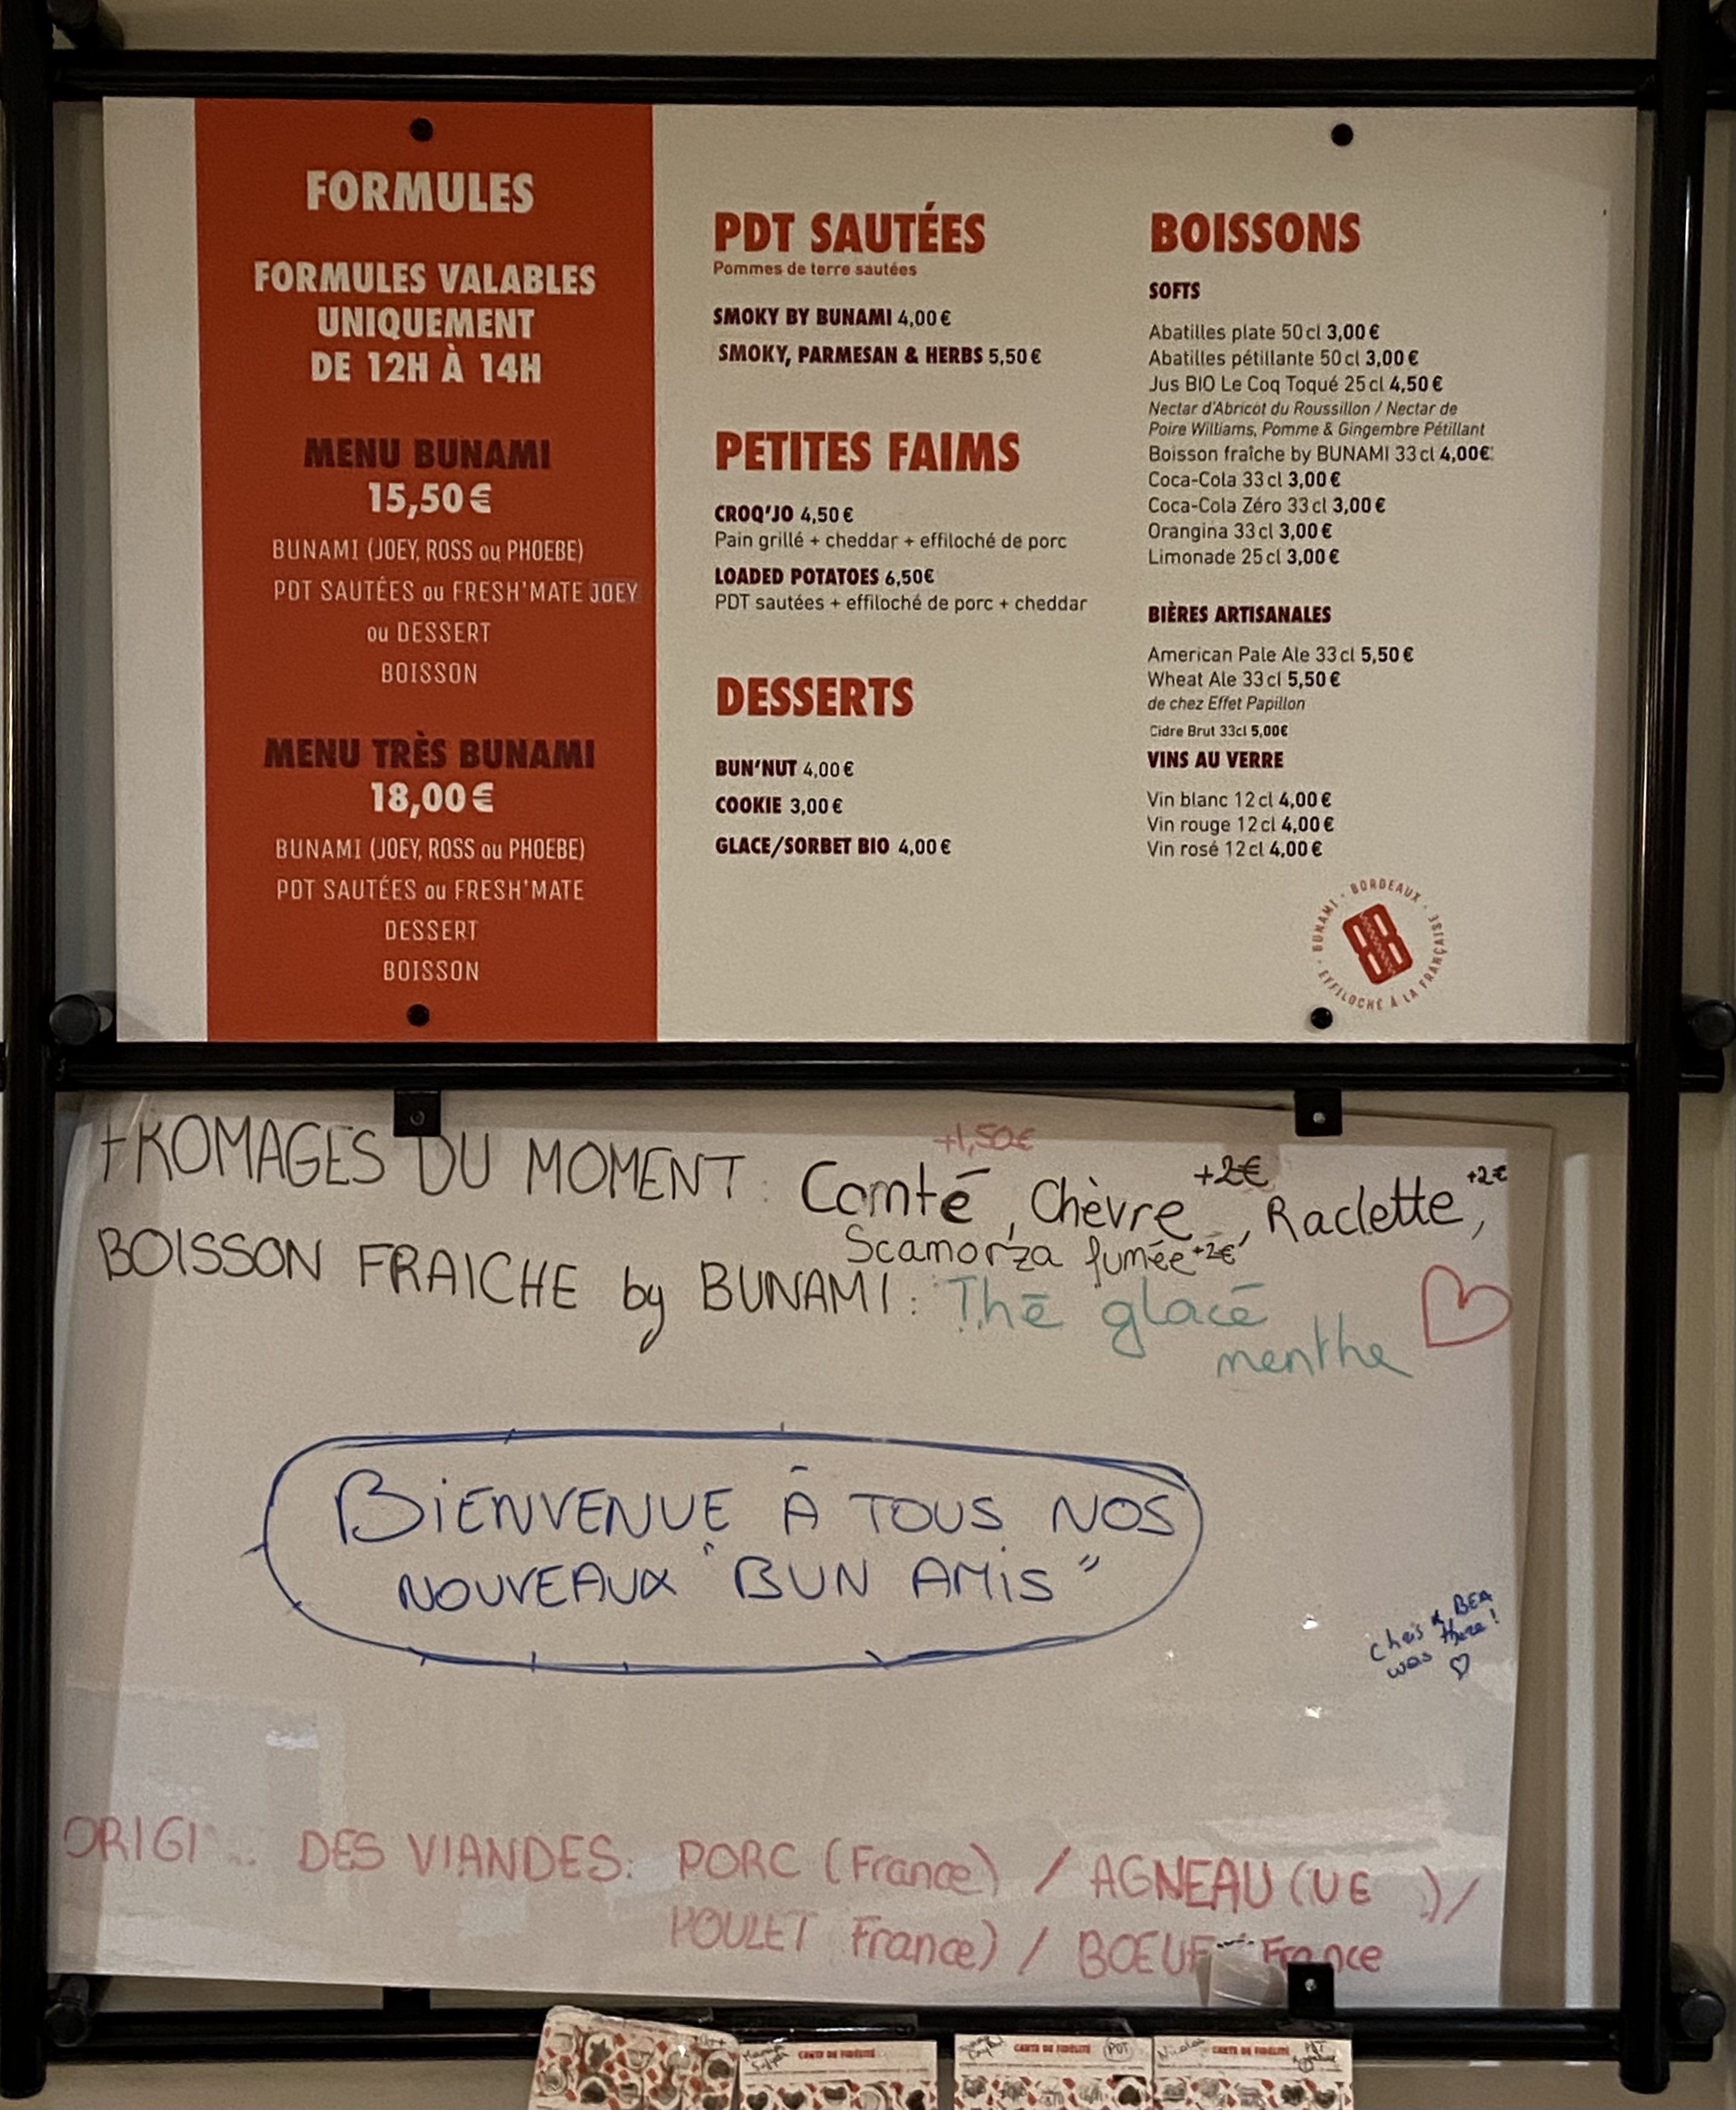 FORMULES
FORMULES VALABLES
UNIQUEMENT
DE 12H À 14H
MENU BUNAMI
15,50 €
BUNAMI (JOEY, ROSS ou PHOEBE)
PDT SAUTÉES ou FRESH'MATE JOEY
ou DESSERT
BOISSON
MENU TRÈS BUNAMI
18,00 €
BUNAMI (JOEY, ROSS ou PHOEBE)
PDT SAUTÉES ou FRESH'MATE
DESSERT
BOISSON
PDT SAUTÉES
Pommes de terre sautées
SMOKY BY BUNAMI 4,00 €
SMOKY, PARMESAN & HERBS 5,50 €
PETITES FAIMS
CROQ'JO 4,50 €
Pain grillé + cheddar + effiloché de porc
LOADED POTATOES 6,50€
PDT sautées + effiloché de porc + cheddar
DESSERTS
BUN'NUT 4,00 €
COOKIE 3,00 €
GLACE/SORBET BIO 4,00 €
BOISSONS
SOFTS
Abatilles plate 50 cl 3,00 €
Abatilles pétillante 50 cl 3,00 €
Jus BIO Le Coq Toqué 25 cl 4,50 €
Nectar d'Abricot du Roussillon / Nectar de
Poire Williams, Pomme & Gingembre Pétillant
Boisson fraîche by BUNAMI 33 cl 4,00€
Coca-Cola 33 cl 3,00 €
Coca-Cola Zéro 33 cl 3,00 €
Orangina 33 cl 3,00 €
Limonade 25 cl 3,00 €
BIÈRES ARTISANALES
American Pale Ale 33 cl 5,50 €
Wheat Ale 33 cl 5,50 €
de chez Effet Papillon
Cidre Brut 33cl 5,00€
VINS AU VERRE
Vin blanc 12 cl 4,00 €
Vin rouge 12 cl 4,00 €
Vin rosé 12 cl 4,00 €
BUNAMI · BORDEAUX · EFFILOCHÉ À LA FRANÇAISE ·
+1,50€
FROMAGES DU MOMENT : Comté, Chèvre +2€, Raclette +2€,
Scamorza fumée +2€
BOISSON FRAICHE by BUNAMI : Thé glacé
menthe
BIENVENUE À TOUS NOS
NOUVEAUX "BUN AMIS"
Chris & BEA
was there!
ORIGI DES VIANDES: PORC (France) / AGNEAU (UE ) /
POULET France) / BOEUF France
CARTE DE FIDÉLITÉ
CARTE DE FIDÉLITÉ PDT
Nicolas CARTE DE FIDÉLITÉ